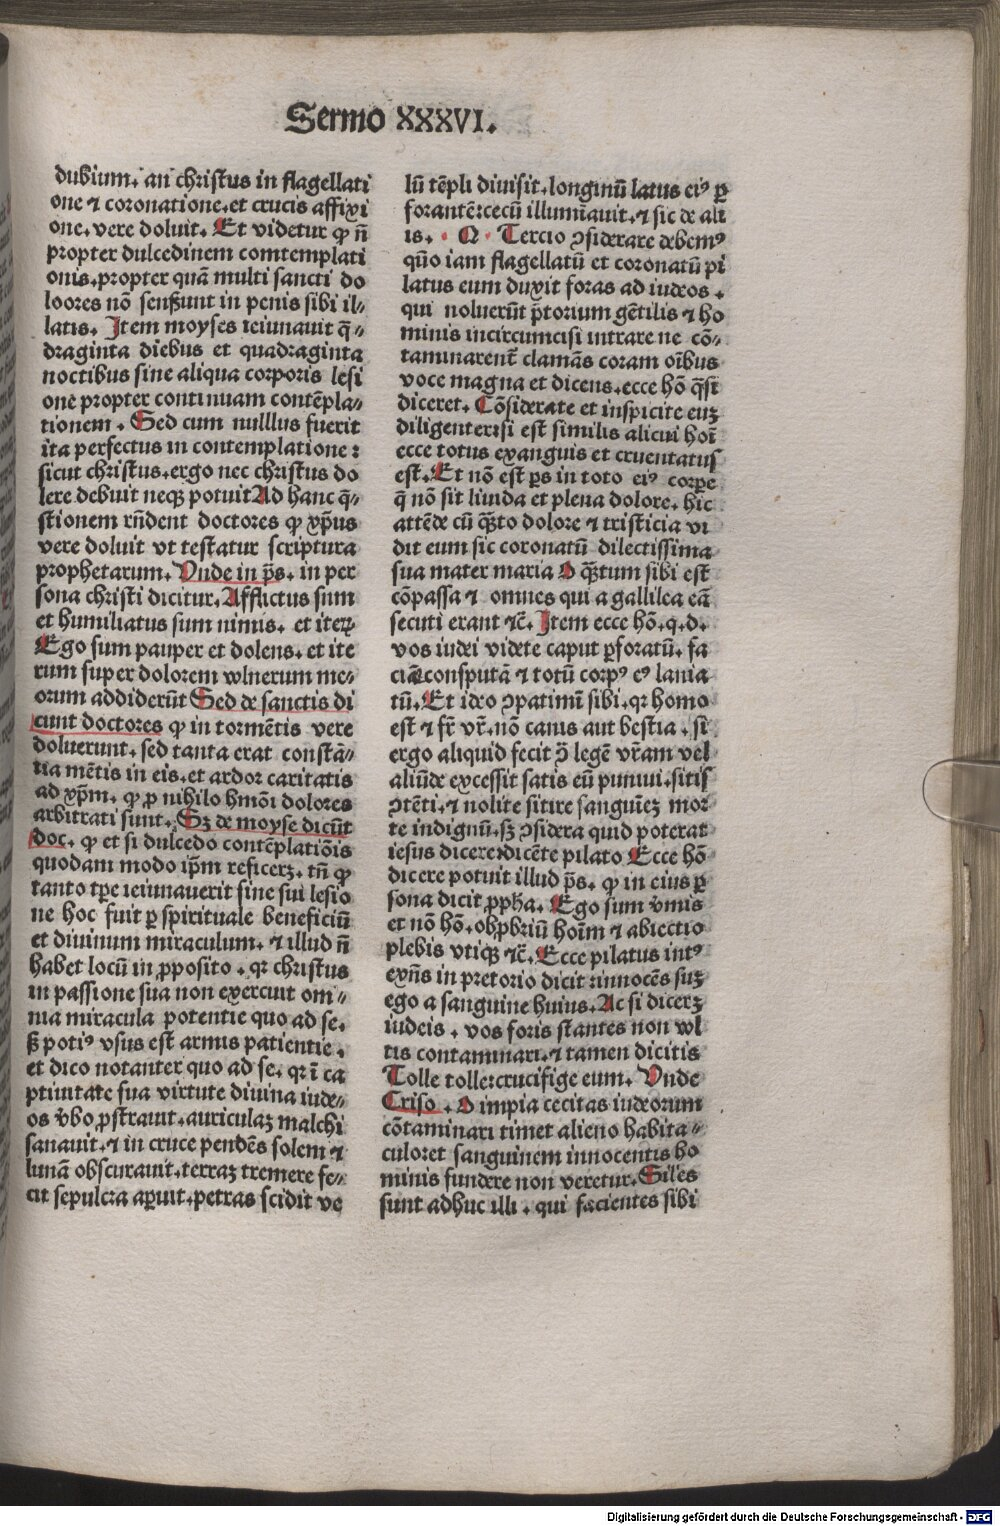 Sermo XXXVI.
dubium. an christus in flagellati
one ⁊ coronatione. et crucis affixi
one. vere doluit. Et videtur ꝙ n̄
propter dulcedinem comtemplati
onis. propter quā multi sancti do
loores nō senßunt in penis sibi il⸗
latis. Item moyses ieiunauit q̄⸗
draginta diebus et quadraginta
noctibus sine aliqua corporis lesi
one propter continuam contēpla⸗
tionem. Sed cum nulllus fuerit
ita perfectus in contemplatione:
sicut christus. ergo nec christus do
lere debuit neqꝫ potuit Ad hanc q̄⸗
stionem rn̄dent doctores ꝙ xp̄us
vere doluit vt testatur scriptura
prophetarum. Vnde in p̄s. in per
sona christi dicitur. Afflictus sum
et humiliatus sum nimis. et iteꝝ
Ego sum pauper et dolens. et ite
rum super dolorem wlnerum me⸗
orum addiderūt Sed de sanctis di
cunt doctores ꝙ in tormētis vere
doluerunt. sed tanta erat constā⸗
tia mētis in eis. et ardor caritatis
ad xp̄m. ꝙ ꝓ nihilo hmōi dolores
arbitrati sunt. Sꝫ de moyse dicūt
doc. ꝙ et si dulcedo contēplatiōis
quodam modo ip̄m reficerꝫ. tn̄ ꝙ
tanto tp̄e ieiunauerit sine sui lesio
ne hoc fuit ꝑ spirituale beneficiū
et diuinum miraculum. ⁊ illud nō
habet locū in ꝓposito. qꝛ christus
in passione sua non exercuit om⸗
nia miracula potentie quo ad se.
ß potiꝰ vsus est armis patientie.
et dico notanter quo ad se. qꝛ ī ca
ptiuitate sua virtute diuina iude⸗
os v̄bo ꝓstrauit. auriculaꝫ malchi
sanauit. ⁊ in cruce pendēs solem ⁊
lunā obscurauit. terraꝫ tremere fe⸗
cit sepulcra aꝑuit. petras scidit ve
lū tēpli diuisit. longinū latus eiꝰ ꝑ
forantē: cecū illumīauit. ⁊ sic de ali
is. Q Tercio ꝯsiderare debemꝰ
qūo iam flagellatū et coronatū pi
latus eum duxit foras ad iudeos.
qui noluerūt p̄torium gētilis ⁊ ho
minis incircumcisi intrare ne cō⸗
taminarent᷑ clamās coram oībus
voce magna et dicens. ecce hō q̄si
diceret. Cōsiderate et inspicite euꝫ
diligenter: si est similis alicui hoī
ecce totus exanguis et cruentatus
est. Et nō est ꝑs in toto eiꝰ corpe
q̄ nō sit liuida et plena dolore. hic
attēde cū q̄to dolore ⁊ tristicia vi
dit eum sic coronatū dilectissima
sua mater maria O q̄tum sibi est
cōpassa ⁊ omnes qui a gallilea eā
secuti erant ⁊c̄. Item ecce hō. q. d.
vos iudei videte caput ꝑforatū. fa
ciā consputā ⁊ totū corpꝰ eꝰ lania
tū. Et ideo ꝯpatimī sibi. qꝛ homo
est ⁊ fr̄ vr̄. nō canis aut bestia. si
ergo aliquid fecit ꝯ̄ legē vr̄am vel
aliūde excessit satis eū puniui. sitis
ꝯtēti. ⁊ nolite sitire sanguīeꝫ mor
te indignū. sꝫ ꝯsidera quid poterat
iesus dicere: dicēte pilato Ecce hō
dicere potuit illud p̄s. ꝙ in eius ꝑ
sona dicit ꝓpha. Ego sum v̄mis
et nō hō. obꝓbriū hoīm ⁊ abiectio
plebis vtiqꝫ ⁊c̄. Ecce pilatus intꝰ
exn̄s in pretorio dicit: innocēs suꝫ
ego a sanguine huius. Ac si dicerꝫ
iudeis. vos foris stantes non wl
tis contaminari. ⁊ tamen dicitis
Tolle tolle: crucifige eum. Vnde
Criso. O impia cecitas iudeorum
cōtaminari timet alieno habita⸗
culo: et sanguinem innocentis ho
minis fundere non veretur. Siles
sunt adhuc illi. qui facientes sibi
Digitalisierung gefördert durch die Deutsche Forschungsgemeinschaft - DFG